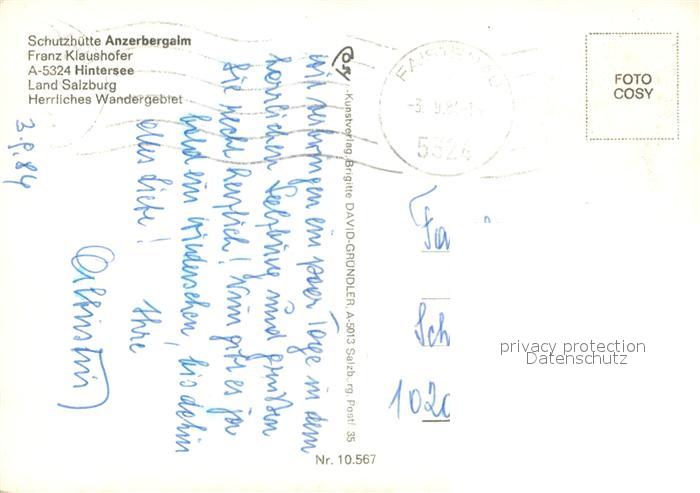 Schutzhütte Anzerbergalm
Franz Klaushofer
A-5324 Hintersee
Land Salzburg
Herrliches Wandergebiet
3.9.84
wir verbringen ein paar Tage in dem
herrlichen Salzburg und grüßen
Sie recht herzlich! Nun gibt es ja
bald ein Wiedersehen, bis dahin
alles Liebe!
Ihre
Cosy
Kunstverlag, Brigitte DAVID-GRÜNDLER, A-5013 Salzburg, Postf. 35
Nr. 10.567
FAISTENAU
5324
FOTO
COSY
Fa
Sch
1020
privacy protection
Datenschutz